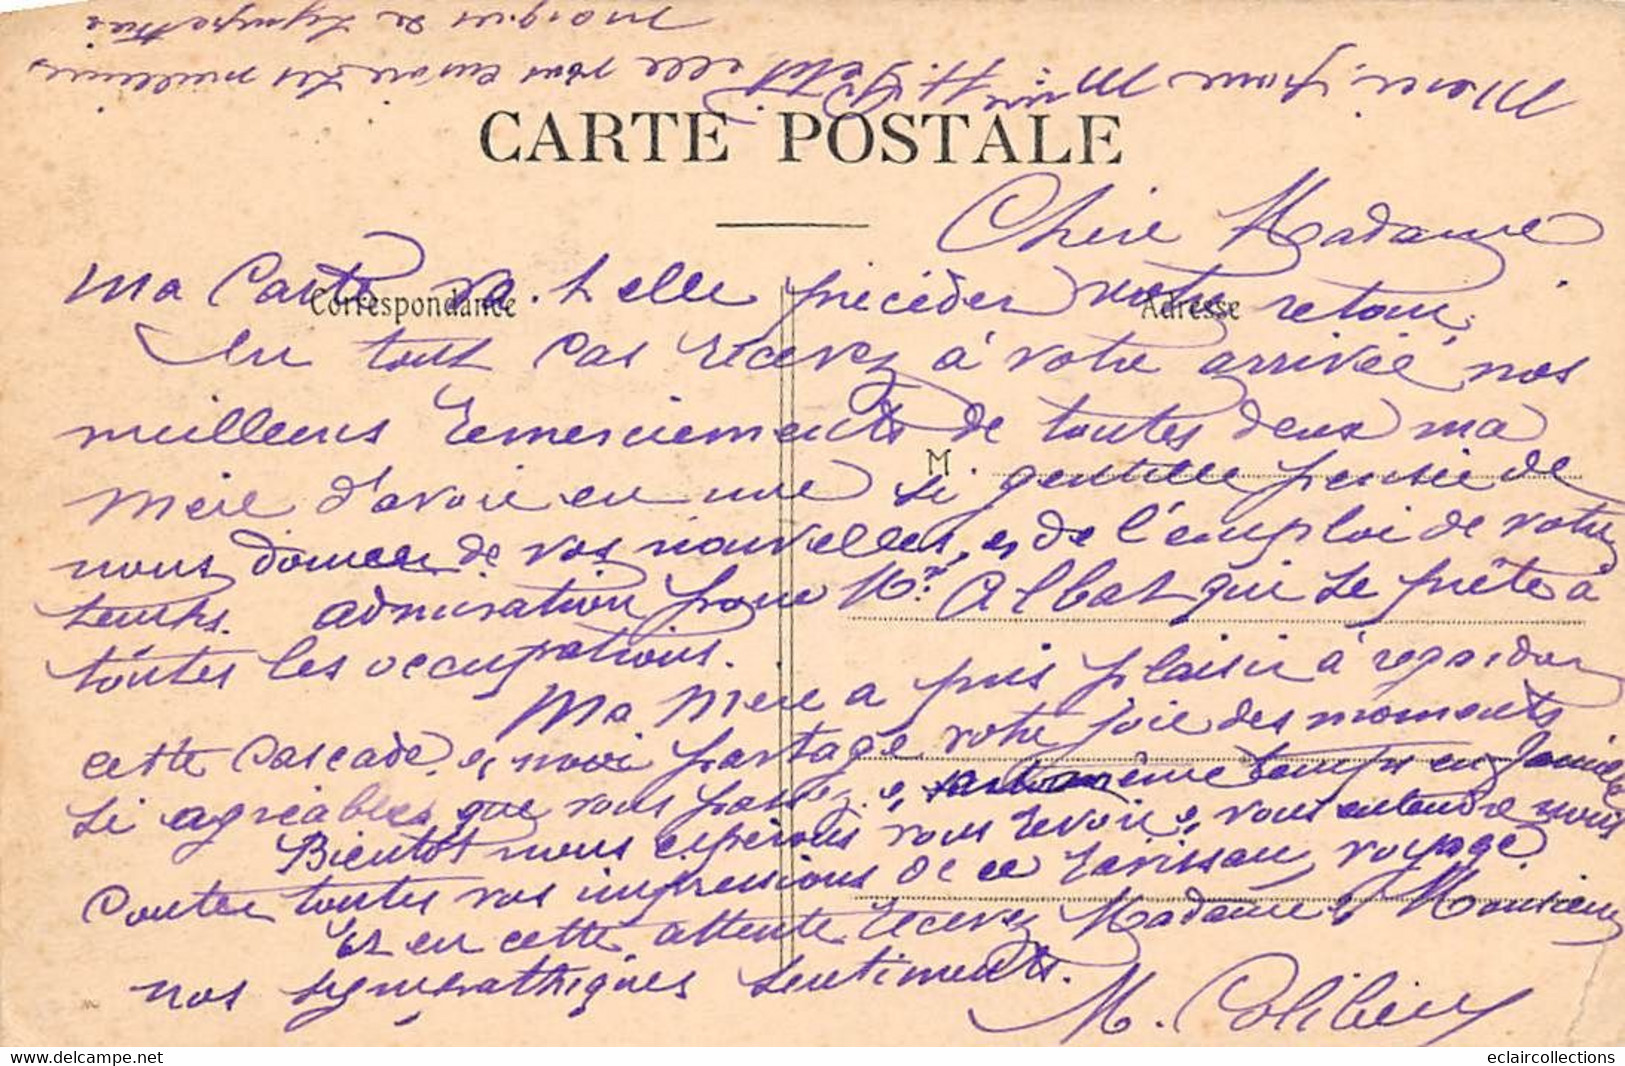 Merci pour Mme H. Petit elle vous envoie les meilleures
marques de sympathie
CARTE POSTALE
Chère Madame
Correspondance
Adresse
ma Carte va-t elle précéder votre retour.
En tout cas recevez à votre arrivée nos
meilleurs remerciements de toutes deux ma
M
Mère d'avoir eu une si gentille pensée de
nous donner de vos nouvelles, et de l'emploi de votre
temps. admiration pour Mr. Albat qui se prête à
toutes les occupations.
Ma Mère a pris plaisir à regarder
cette Cascade, et moi partage votre joie des moments
si agréables que vous passez, et même temps en famille
Bientôt nous espérons vous revoir et vous entendre nous
conter toutes vos impressions de ce ravissant voyage
Et en cette attente recevez Madame & Monsieur
nos sympathiques sentiments.
M. Colibeuf
eclaircollections